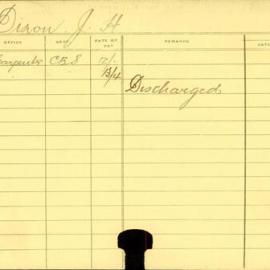 Dixon J. H
OFFICE DEPT. RATE OF PAY REMARKS DATE
Carpenter C.B.S 12/-
13/4
Discharged